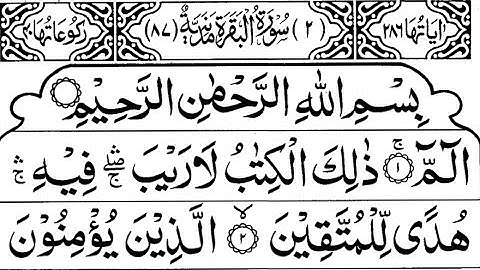 اٰيَاتُهَا ٢٨٦ (٢) سُوْرَةُ الْبَقَرَةِ مَدَنِيَّةٌ (٨٧) رُكُوْعَاتُهَا ٤٠
بِسْمِ اللّٰهِ الرَّحْمٰنِ الرَّحِيْمِ
الٓمّٓ ۚ ۝١ ذٰلِكَ الْكِتٰبُ لَا رَيْبَ ۛۖ فِيْهِ ۛۚ
هُدًى لِّلْمُتَّقِيْنَ ۙ ۝٢ الَّذِيْنَ يُؤْمِنُوْنَ